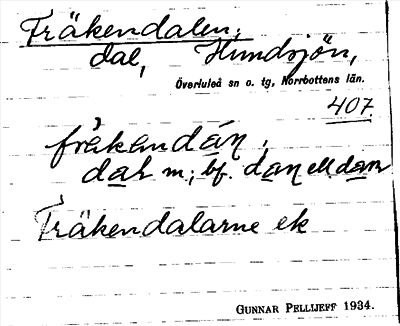 Fräkendalen,
dal, Hundsjön,
Överluleå sn o. tg, Norrbottens län.
407.
fräkendáṉ,
dah m.; bf. daṉ ell. dam
Fräkendalarne ek
GUNNAR PELLIJEFF 1934.